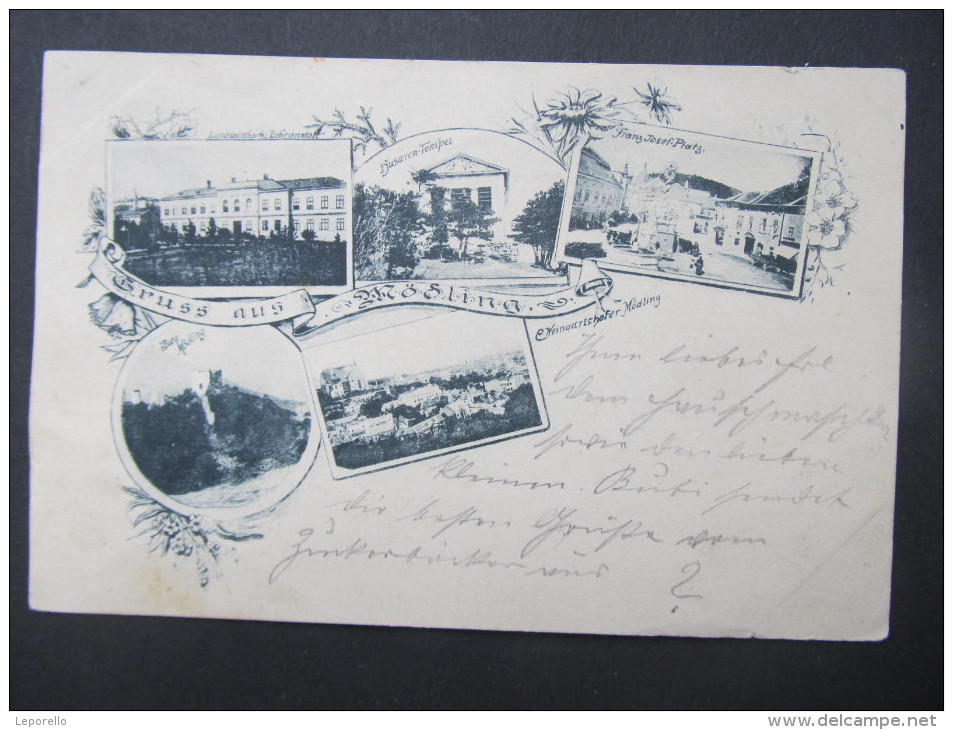 Landwirthsch. Lehranstalt
Husaren-Tempel
Franz Josef-Platz.
Gruss aus Mödling.
Burg
Mödling
C Weingartshofer Mödling
liebes Frl
dem
sowie den lieben
kleinen. Bubi sendet
die besten Grüße vom
Zuckerbäcker aus
?
Leporello
www.delcampe.net